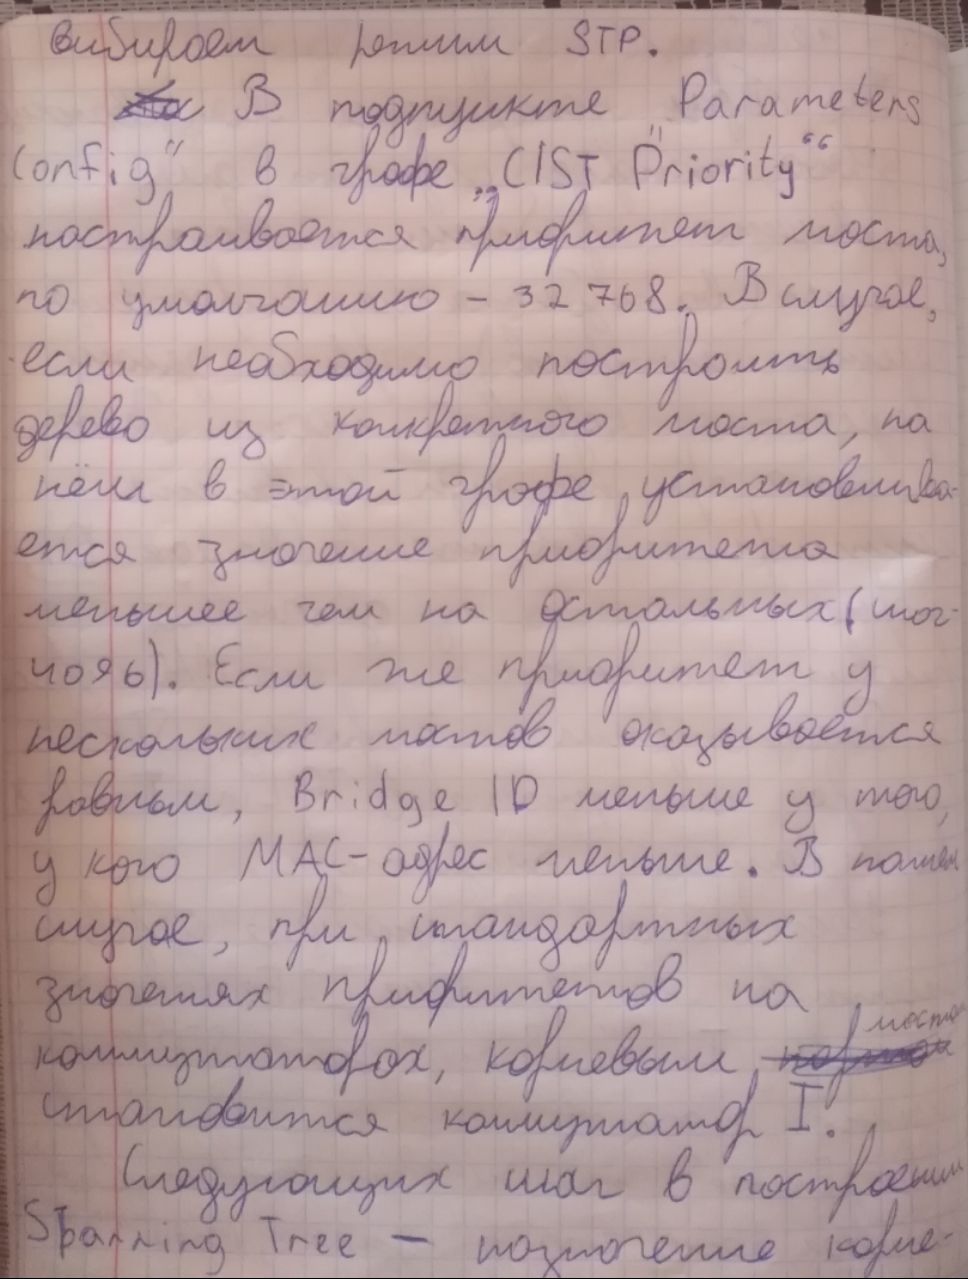 выбираем режим STP.
В подпункте "Parameters
Config" в графе „CIST Priority“
настраивается приоритет моста,
по умолчанию – 32 768. В случае,
если необходимо построить
дерево из конкретного моста, на
нём в этой графе устанавлива-
ется значение приоритета
меньшее чем на остальных (шаг-
4096). Если же приоритет у
нескольких мостов оказывается
равным, Bridge ID меньше у того,
у кого MAC-адрес меньше. В нашем
случае, при стандартных
значениях приоритетов на
коммутаторах, корневым мостом
становится коммутатор I.
Следующих шаг в построении
Spanning Tree – назначение корне-